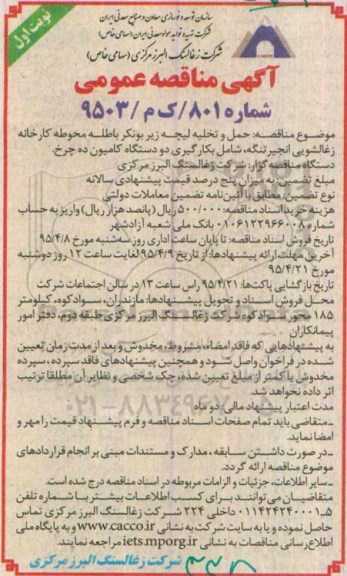 نوبت اول
سازمان توسعه و نوسازی معادن و صنایع معدنی ایران
شرکت تهیه و تولید مواد معدنی ایران (سهامی خاص)
شرکت زغالسنگ البرز مرکزی (سهامی خاص)
آگهی مناقصه عمومی
شماره ۸۰۱/ک م/۹۵۰۳
موضوع مناقصه: حمل و تخلیه لیچه زیر بونکر باطله محوطه کارخانه
زغالشویی انجیر تنگه، شامل بکارگیری دو دستگاه کامیون ده چرخ.
دستگاه مناقصه گزار: شرکت زغالسنگ البرز مرکزی
مبلغ تضمین: به میزان پنج درصد قیمت پیشنهادی سالانه
نوع تضمین: مطابق با آئین نامه تضمین معاملات دولتی
هزینه خرید اسناد مناقصه: ۵۰۰/۰۰۰ ریال (پانصد هزار ریال) واریز به حساب
شماره ۰۱۰۶۱۲۲۹۶۶۰۰۸ بانک ملی شعبه آزادشهر
تاریخ فروش اسناد مناقصه: تا پایان ساعت اداری روز سه‌شنبه مورخ ۹۵/۴/۸
آخرین مهلت ارائه پیشنهادها: از تاریخ ۹۵/۴/۹ لغایت ساعت ۱۲ روز دوشنبه
مورخ ۹۵/۴/۲۱
تاریخ بازگشایی پاکت‌ها: ۹۵/۴/۲۱ راس ساعت ۱۳ در سالن اجتماعات شرکت
محل فروش اسناد و تحویل پیشنهادها: مازندران، سوادکوه، کیلومتر
۱۸۵ محور سوادکوه شرکت زغالسنگ البرز مرکزی طبقه دوم، دفتر امور
پیمانکاران
به پیشنهادهایی که فاقد امضاء، مشروط، مخدوش و بعد از مدت زمان تعیین
شده در فراخوان واصل شود و همچنین پیشنهادهای فاقد سپرده، سپرده
مخدوش یا کمتر از مبلغ تعیین شده، چک شخصی و نظایر آن مطلقا ترتیب
اثر داده نخواهد شد.
مدت اعتبار پیشنهاد مالی: دو ماه
ـ متقاضی باید تمام صفحات اسناد مناقصه و فرم پیشنهاد قیمت را مهر و
امضا نماید.
ـ در صورت داشتن سابقه، مدارک و مستندات مبنی بر انجام قراردادهای
موضوع مناقصه ارائه گردد.
ـ سایر اطلاعات، جزئیات و الزامات مربوطه در اسناد مناقصه درج شده است.
متقاضیان می‌توانند برای کسب اطلاعات بیشتر با شماره تلفن
۵-۰۱۱۴۲۴۲۴۰۰۰۱ داخلی ۲۲۴ شرکت زغالسنگ البرز مرکزی تماس
حاصل نموده و یا به سایت شرکت به نشانی www.cacco.ir و به پایگاه ملی
اطلاع رسانی مناقصات به نشانی iets.mporg.ir مراجعه نمایند.
شرکت زغالسنگ البرز مرکزی